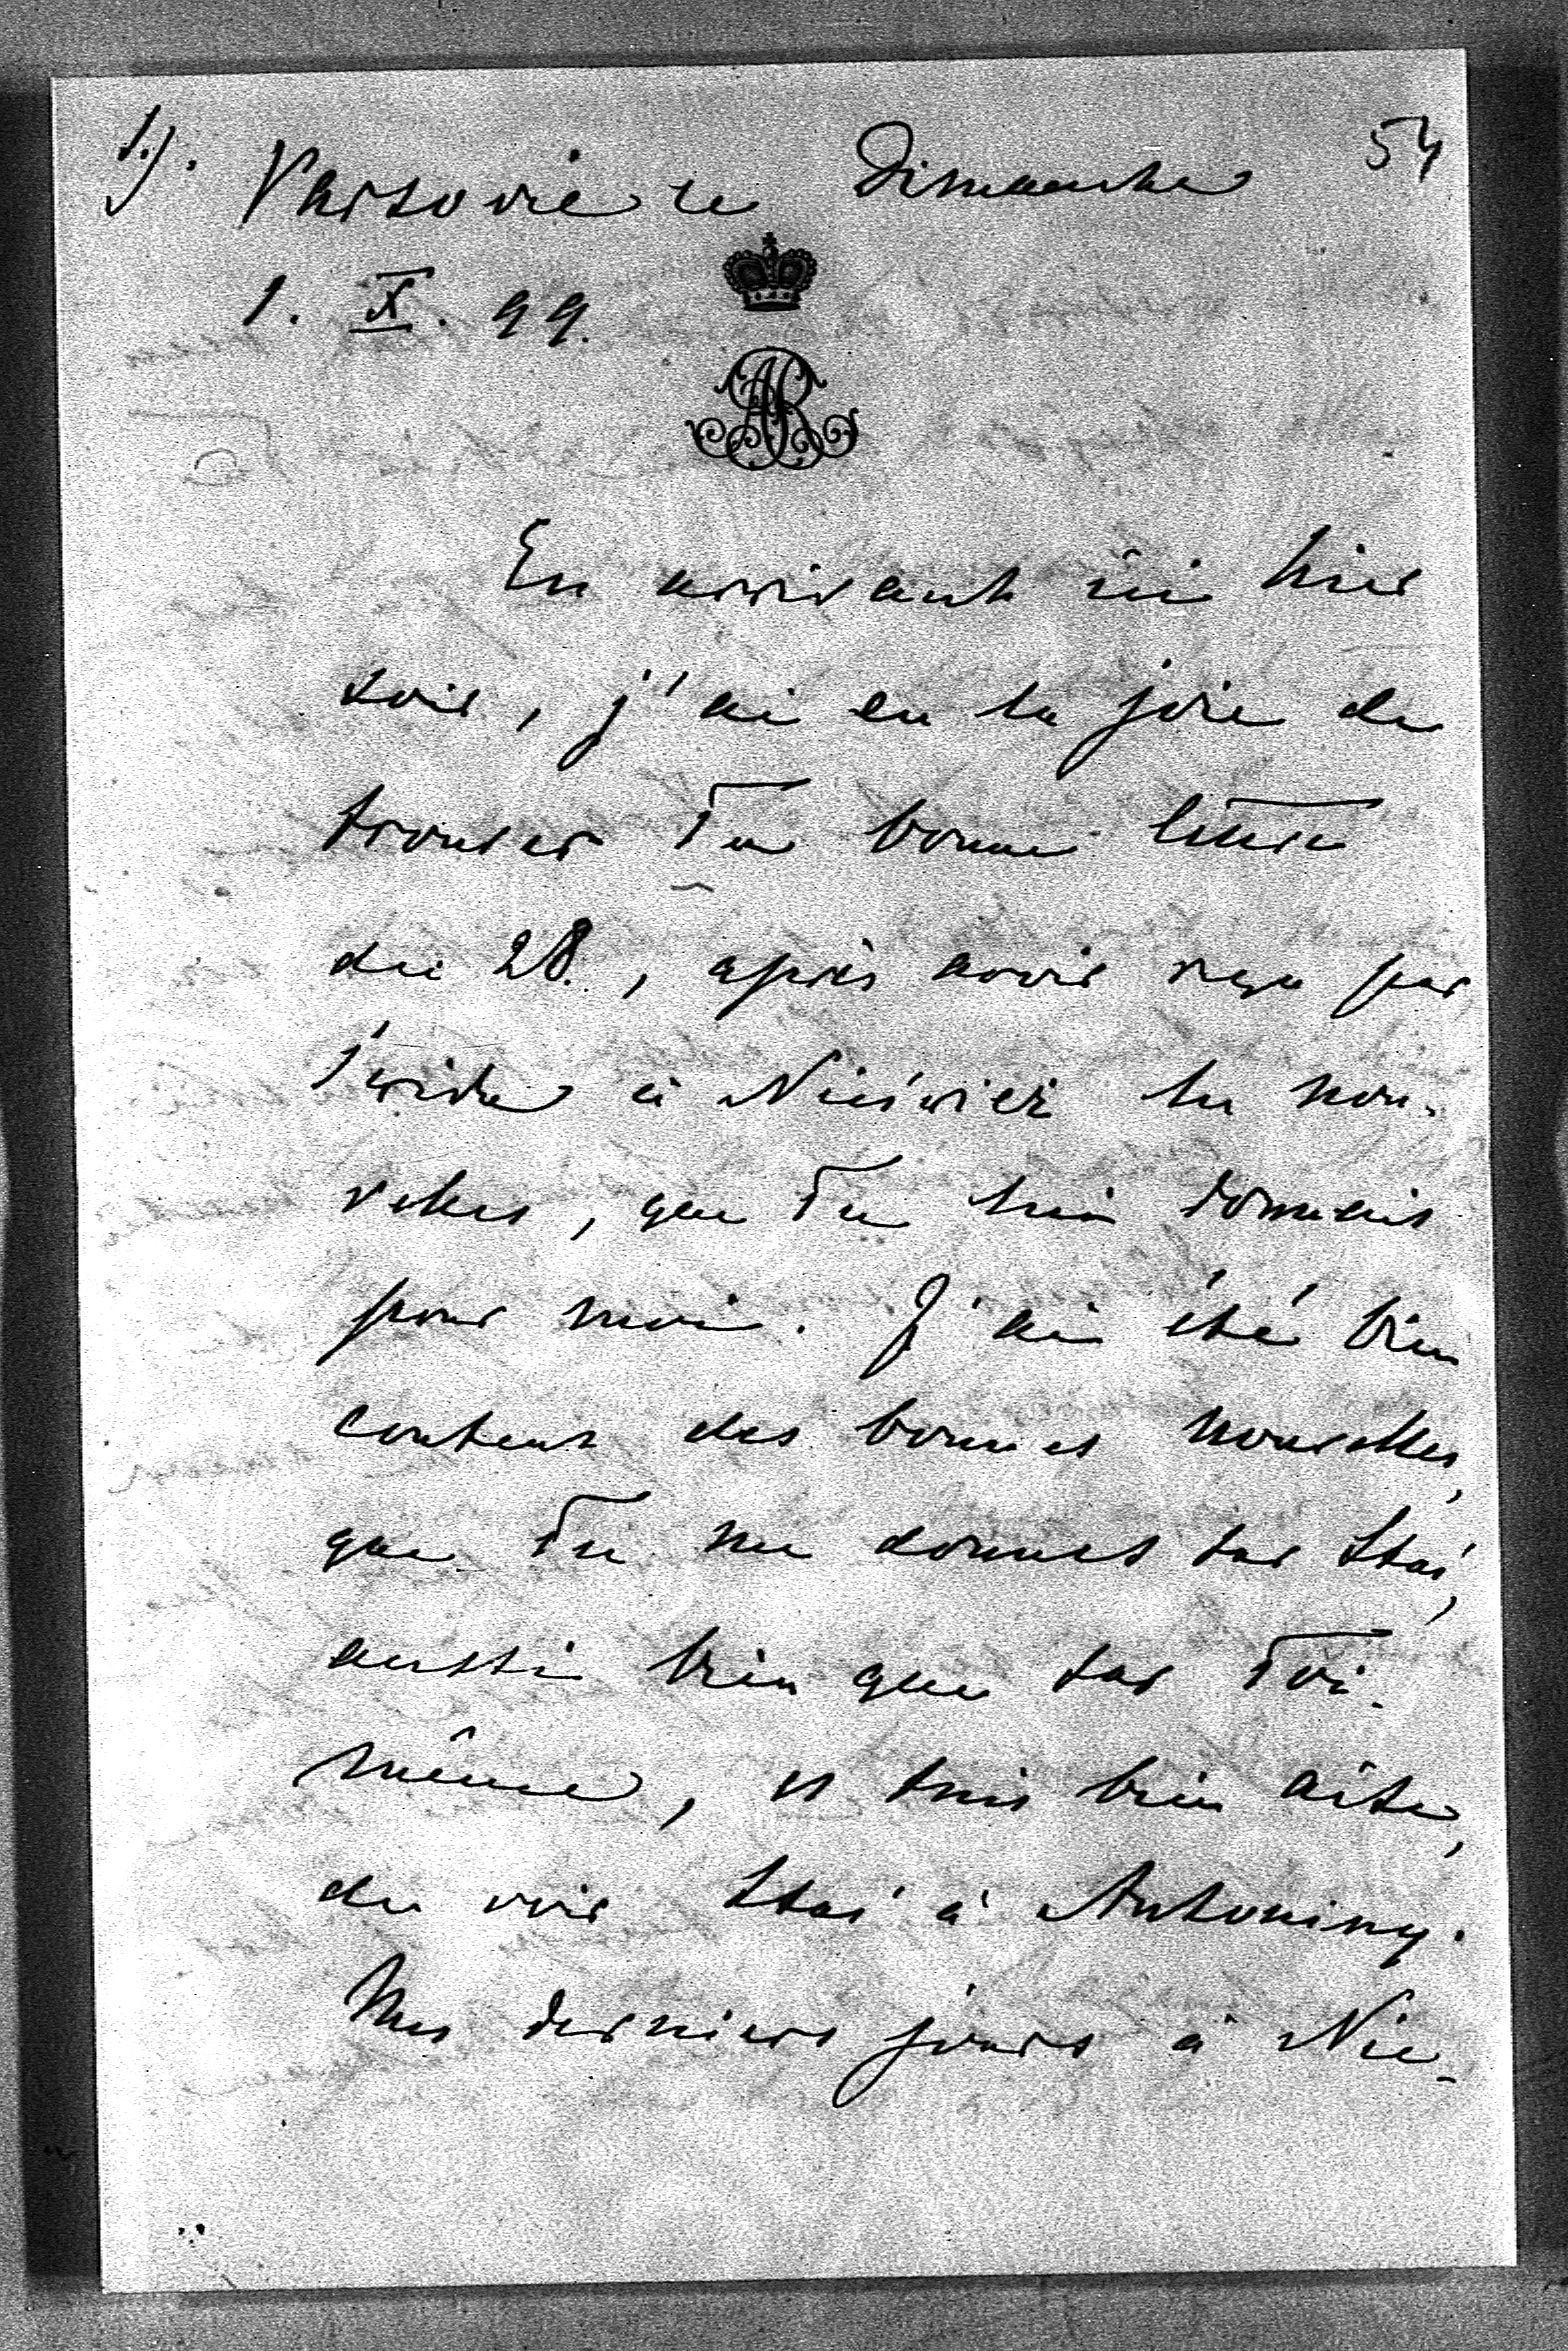 1). Varsovie le Dimanche 54
1. X. 99.
AR
En arrivant ici hier
soir, j'ai eu la joie de
trouver Ta bonne lettre
du 28., après avoir reçu par
à Nieśwież les nou-
velles, que Tu lui donnais
pour moi. J'ai été bien
content des bonnes nouvelles,
que Tu me donnes sur Staś,
aussi bien que sur Toi-
même, et suis bien aise,
de voir Staś à Antoniny.
Mes derniers jours à Nie-